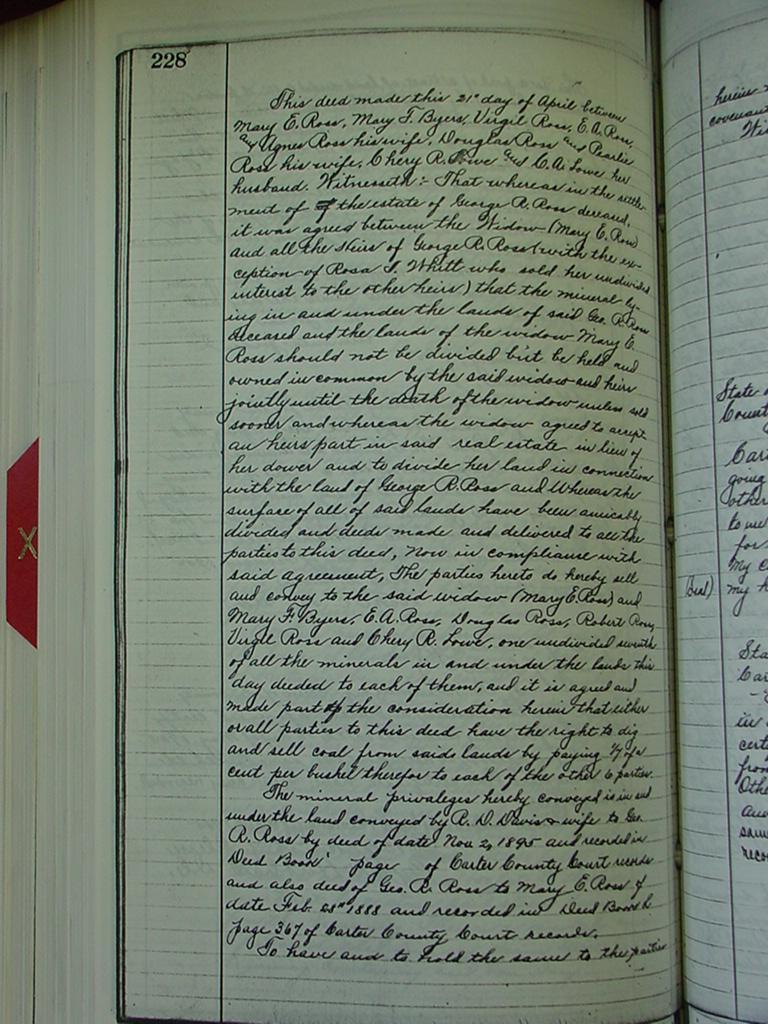 228
This deed made this 21st day of April between
Mary E. Ross, Mary F. Byers, Virgil Ross, E. A. Ross,
and Agnes Ross his wife, Douglas Ross and Pearlie
Ross his wife, Chery R. Lowe and C. A. Lowe her
husband. Witnesseth:- That whereas in the settle-
ment of the estate of George R. Ross deceased,
it was agreed between the Widow (Mary E. Ross)
and all the Heirs of George R. Ross (with the ex-
ception of Rosa S. Whitt who sold her undivided
interest to the other heirs) that the mineral ly-
ing in and under the lands of said Geo. R. Ross
deceased and the lands of the widow Mary E.
Ross should not be divided but be held and
owned in common by the said widow and heirs
jointly until the death of the widow unless sold
sooner and whereas the widow agreed to accept
an heirs part in said real estate in lieu of
her dower and to divide her land in connection
with the land of George R. Ross and Whereas the
surface of all of said lands have been amicably
divided and deeds made and delivered to all the
parties to this deed, Now in compliance with
said agreement, The parties hereto do hereby sell
and convey to the said widow (Mary E. Ross) and
Mary F. Byers, E. A. Ross, Douglas Ross, Robert Ross,
Virgil Ross and Chery R. Lowe, one undivided seventh
of all the minerals in and under the lands this
day deeded to each of them, and it is agreed and
made part of the consideration herein that either
or all parties to this deed have the right to dig
and sell coal from said lands by paying 1/7 of a
cent per bushel therefor to each of the other 6 parties.
The mineral privaleges hereby conveyed is in and
under the land conveyed by R. D. Davis & wife to Geo.
R. Ross by deed of date Nov 2, 1895 and recorded in
Deed Book page of Carter County Court records
and also deed of Geo. R. Ross to Mary E. Ross of
date Feb. 28th 1888 and recorded in Deed Book
page 367 of Carter County Court records.
To have and to hold the same to the parties
X
herein
covenant
State
County
going
other
to me
for
my
(Seal) my
in
from